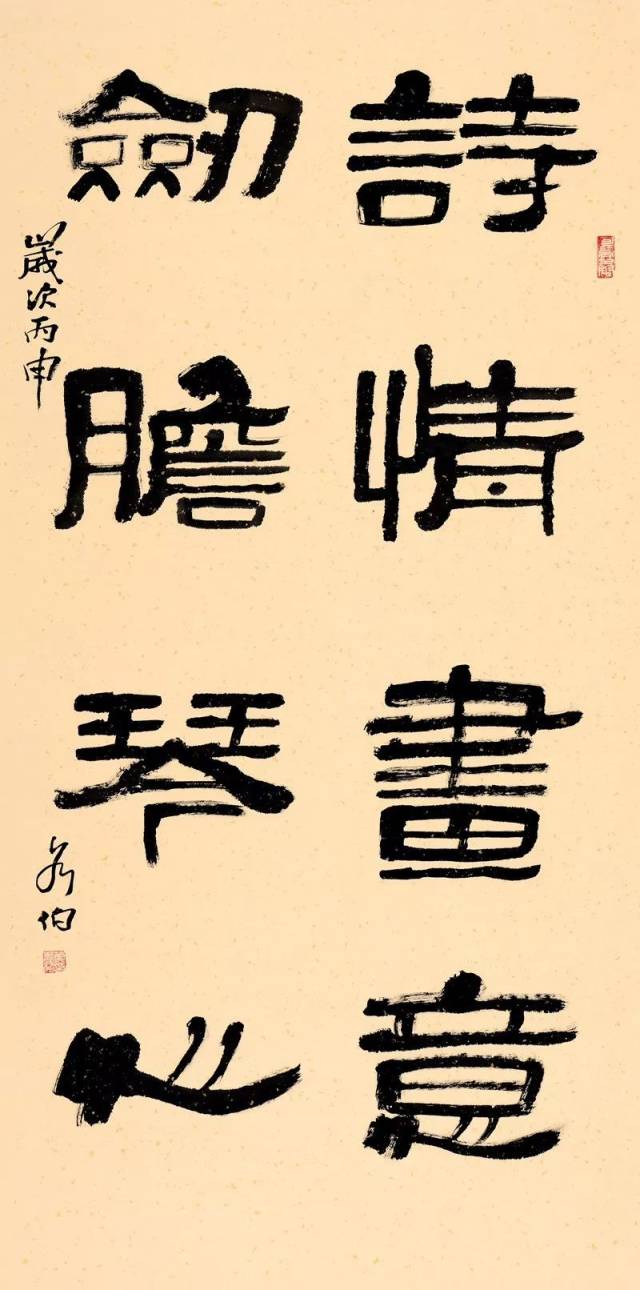 詩情畫意
劒膽琴心
歲次丙申